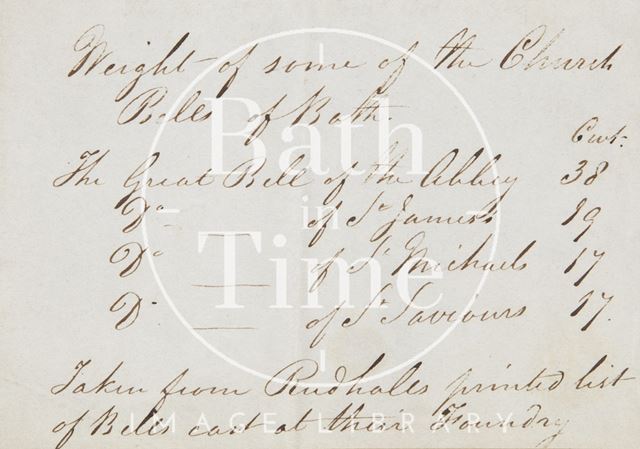 Weight of some of the Church
Bells of Bath.
Cwt.
The Great Bell of the Abby 38
Do —— of St James's 19
Do —— of St Michaels 17
Do —— of St Saviours 17.
Taken from Rudhalls printed list
of Bells cast at their Foundry
Bath
in
Time
IMAGE LIBRARY